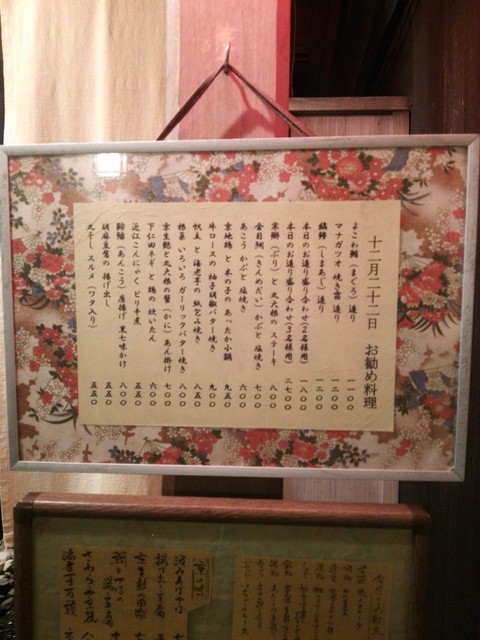 十二月二十二日　お勧め料理
よこわ鮪（まぐろ）造り　一一〇〇
マナガツオ 焼き霜 造り　一二〇〇
縞鯵（しまあじ）造り　一二〇〇
本日のお造り盛り合わせ（2名様用）　一八〇〇
本日のお造り盛り合わせ（3名様用）　二七〇〇
寒鰤（ぶり）と 丸大根の ステーキ　八〇〇
金目鯛（きんめだい）かぶと 塩焼き　七〇〇
あこう かぶと 塩焼き　六〇〇
京地鶏 と 木の子の あったか小鍋　九五〇
牛ロースの 柚子胡椒バター焼き　九〇〇
帆立 と 海老芋の 紙包み焼き　八五〇
根菜 いろいろ ガーリックバター焼き　八〇〇
京生麩と 丸大根の 蟹（かに）あん掛け　七〇〇
下仁田ネギ と 鶏の 炊いたん　六〇〇
近江こんにゃく ピリ辛煮　五五〇
鮟鱇（あんこう）唐揚げ 黒七味かけ　八〇〇
胡麻豆腐の 揚げ出し　五五〇
丸干し スルメ（ワタ入り）　五五〇